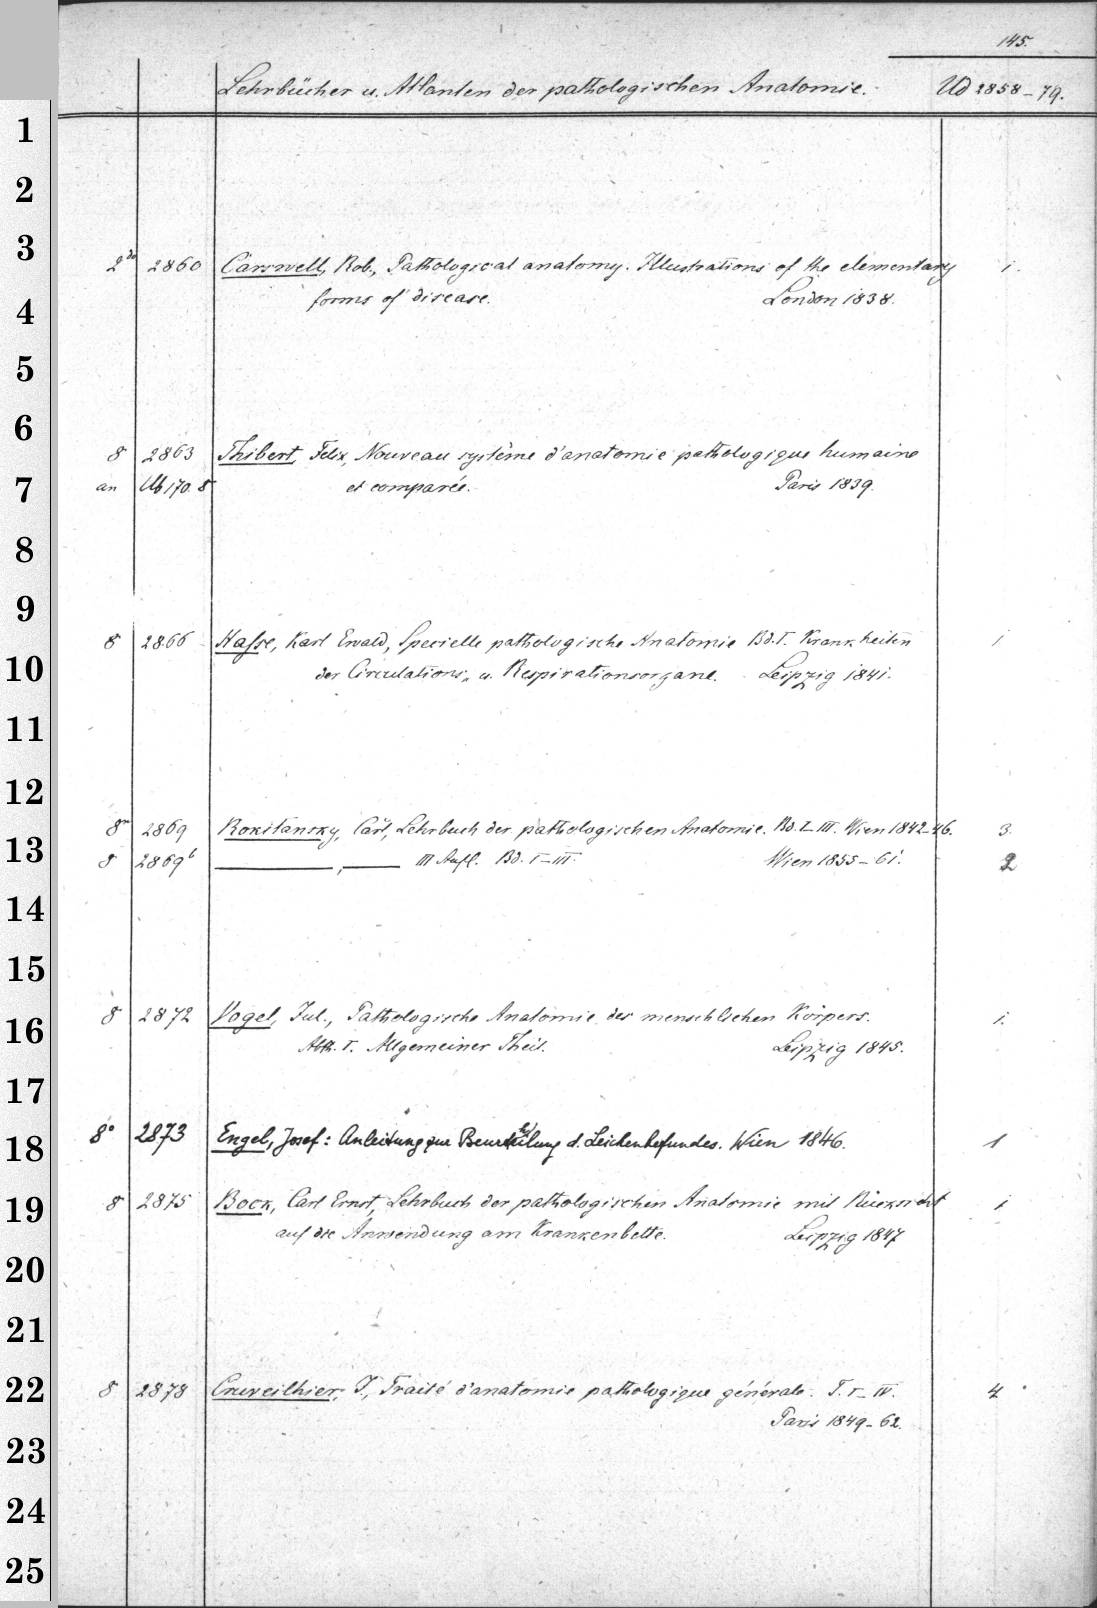 145.
Lehrbücher u. Atlanten der pathologischen Anatomie. Ud 2858-79.
1
2
3
2do 2860 Carswell, Rob., Pathological anatomy. Illustrations of the elementary 1.
forms of disease. London 1838.
4
5
6
8 2863 Thibert, Felix, Nouveau système d'anatomie pathologique humaine
7
an Ub 170. 8 et comparée. Paris 1839.
8
9
8 2866 Hasse, Karl Ewald, Specielle pathologische Anatomie Bd. I. Krankheiten 1
10
der Circulations- u. Respirationsorgane. Leipzig 1841.
11
12
8 2869 Rokitansky, Carl, Lehrbuch der pathologischen Anatomie. Bd. I-III. Wien 1842-46. 3.
13
8 2869b ———, —— III Aufl. Bd. I-III. Wien 1855-61. 2
14
15
8 2872 Vogel, Jul., Pathologische Anatomie des menschlichen Körpers. 1.
16
Abth. I. Allgemeiner Theil. Leipzig 1845.
17
8° 2873 Engel, Josef: Anleitung zur Beurtheilung d. Leichenbefundes. Wien 1846. 1
18
8 2875 Bock, Carl Ernst, Lehrbuch der pathologischen Anatomie mit Rücksicht 1
19
auf die Anwendung am Krankenbette. Leipzig 1847
20
21
8 2878 Cruveilhier, J., Traité d'anatomie pathologique générale. T. I-IV. 4
22
Paris 1849-62.
23
24
25